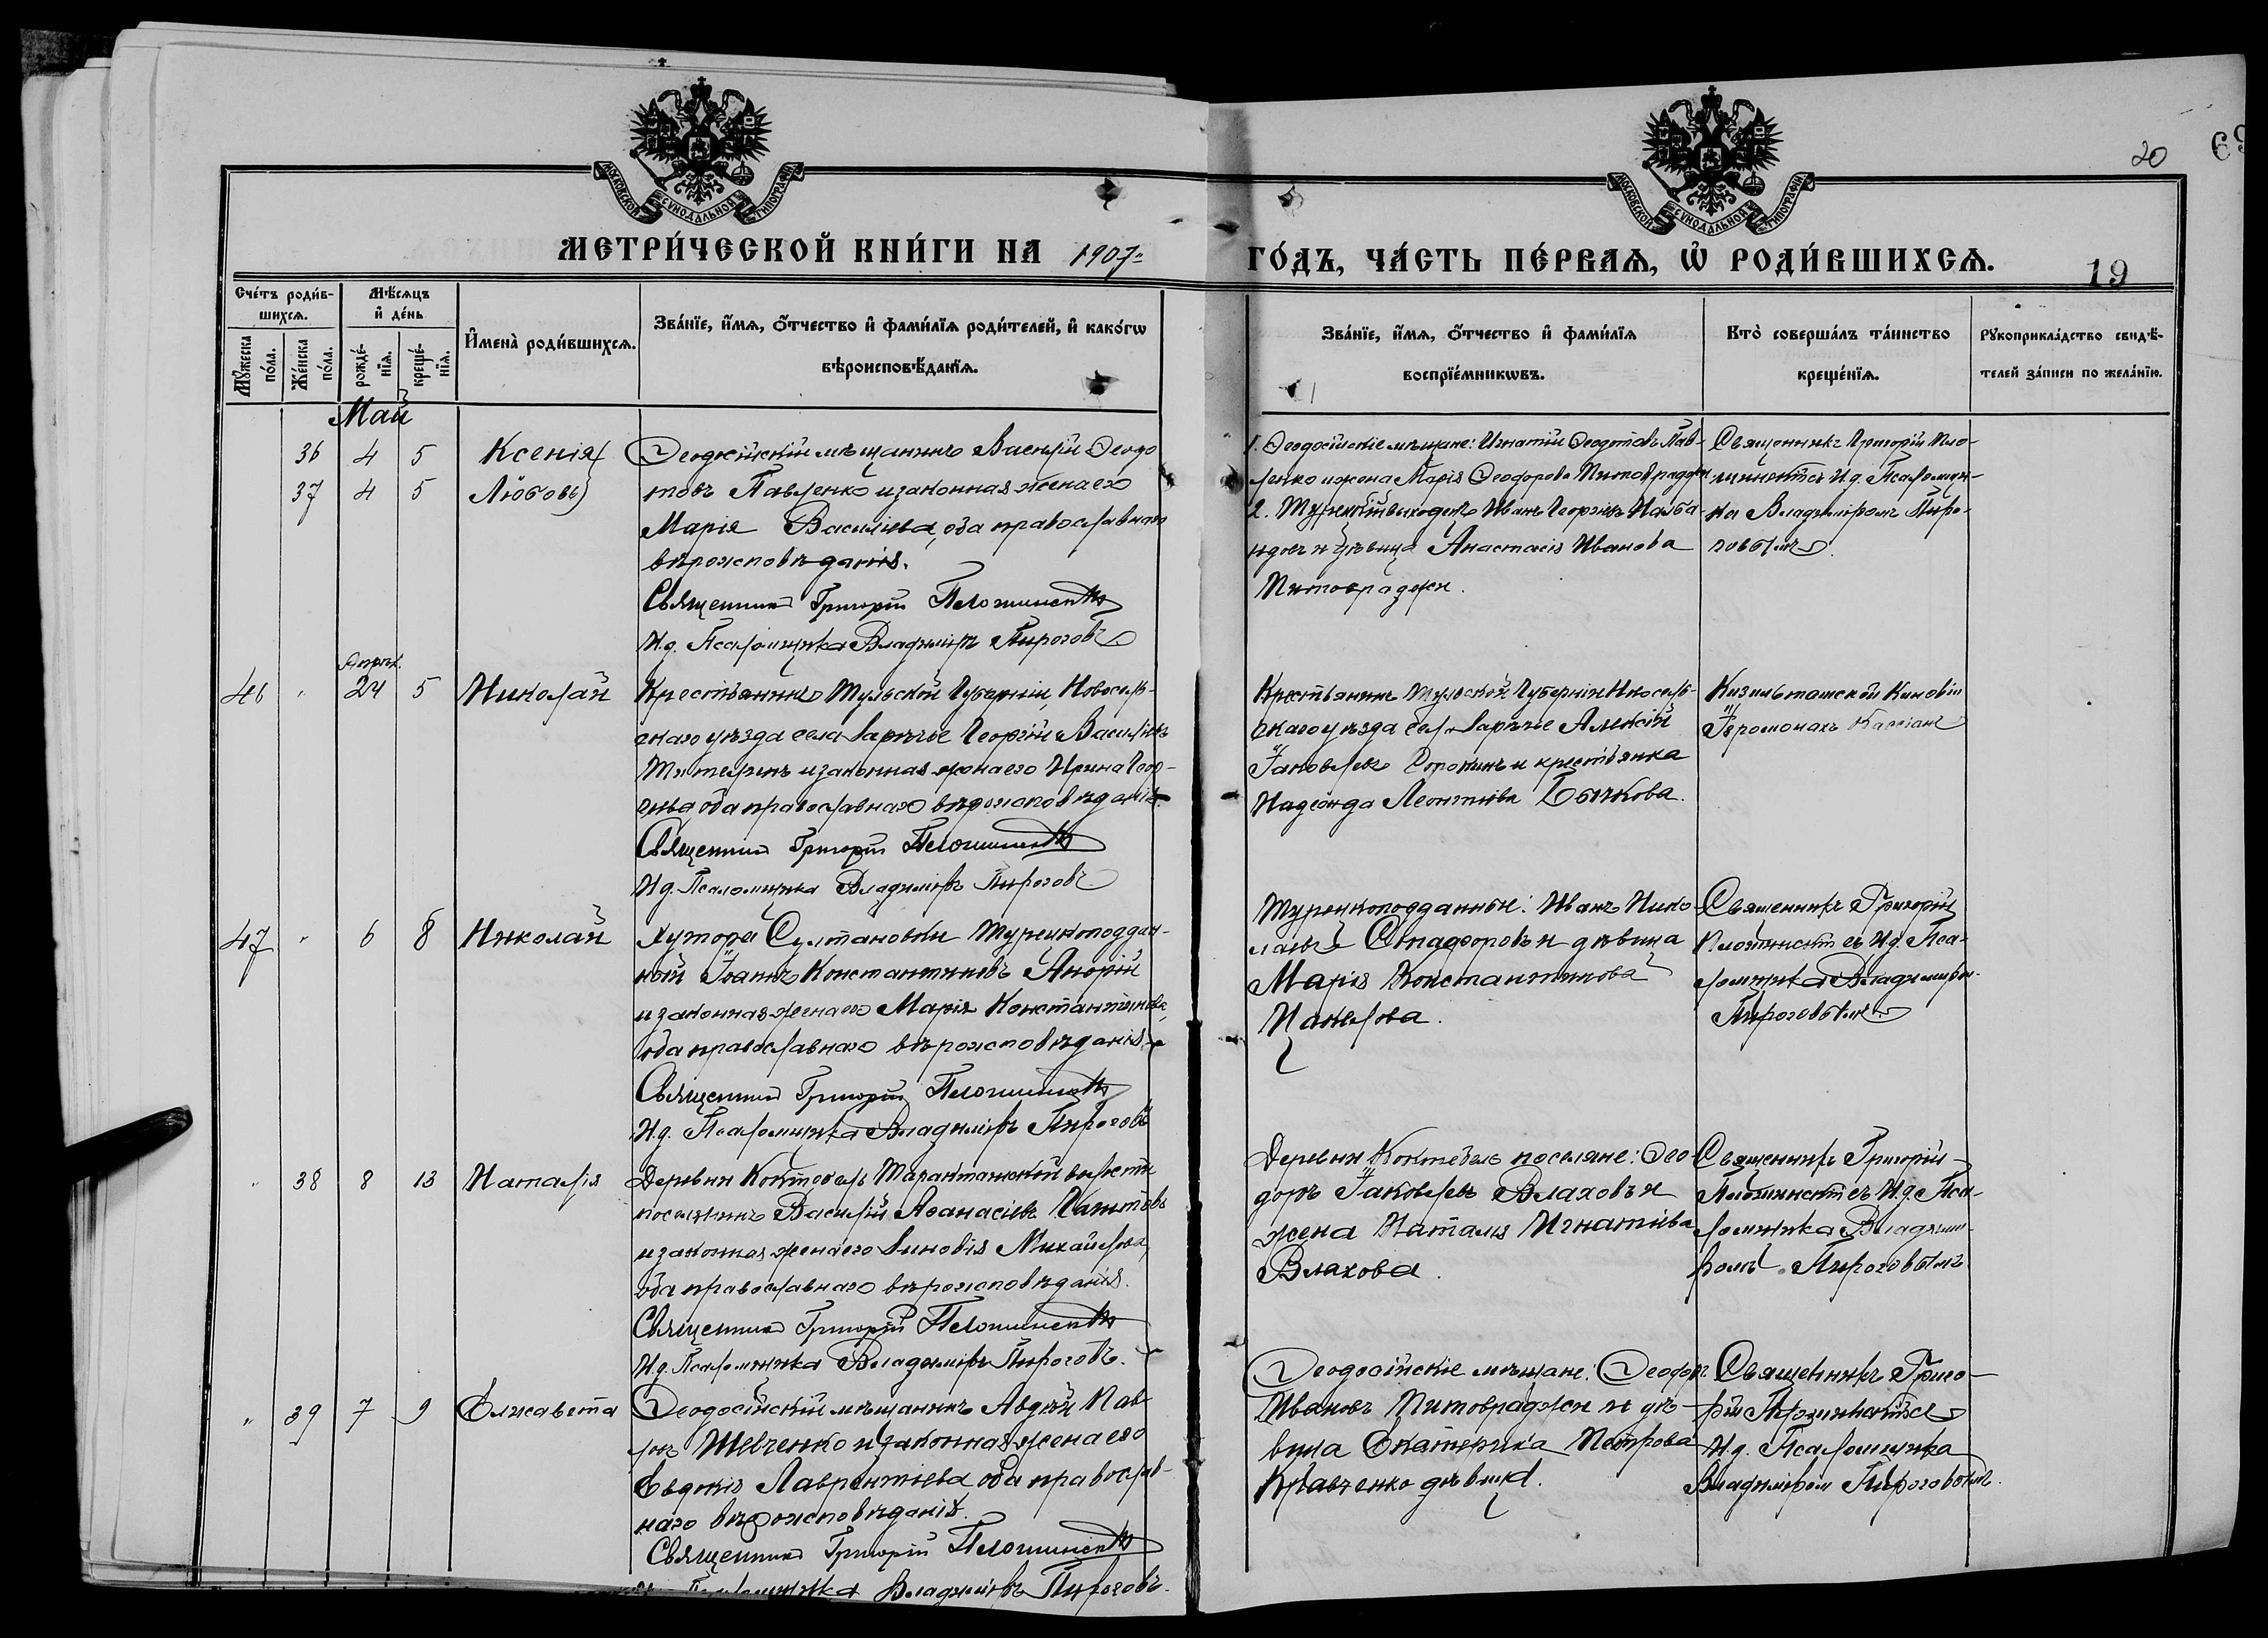 20
69
МОСКОВСКОЙ СѴНОДАЛЬНОЙ ТИПОГРАФІИ
МОСКОВСКОЙ СѴНОДАЛЬНОЙ ТИПОГРАФІИ
МЕТРИ́ЧЕСКОЙ КНИ́ГИ НА 1907 ГО́ДЪ, ЧА́СТЬ ПЕ́РВАѦ, Ѡ҆ РОДИ́ВШИХСѦ.
19
Сче́тъ роди́в-
шихсѧ.
Мѣ́сѧцъ
и҆ де́нь
Мꙋ́жеска
по́ла.
Же́нска
по́ла.
рожде́-
нїѧ.
креще́-
нїѧ.
И҆мена̀ роди́вшихсѧ.
Зва́нїе, и҆́мѧ, ѻ҆́тчество и҆ фами́лїѧ роди́телей, и҆ како́гѡ
вѣроисповѣ́данїѧ.
Зва́нїе, и҆́мѧ, ѻ҆́тчество и҆ фами́лїѧ
воспрїе́мникѡвъ.
Кто̀ соверша́лъ та́инство
креще́нїѧ.
Рꙋкоприкла́дство свидѣ́-
телей за́писи по жела́нїю.
Май
36 4 5 Ксенія
37 4 5 Любовь
Ѳеодосійскій мѣщанинъ Василій Ѳеодо
товъ Павленко и законная жена его
Марія Васильева, оба православнаго
вѣроисповѣданія.
Священникъ Григорій
И.д. Псаломщика Владиміръ Пироговъ
1. Ѳеодосійскіе мѣщане: Игнатій Ѳеодотовъ Пав-
ленко и жена Марія Ѳеодорова
2. Иванъ Георгіевъ
и дѣвица Анастасія Иванова
Священникъ Григорій
съ И.д. Псаломщи-
ка Владиміромъ Пиро-
говымъ.
46 " Апрѣл. 24 5 Николай
Крестьянинъ Тульской Губерніи, Новосиль-
скаго уѣзда села Зарѣчье Георгій Васильевъ
и законная жена его Ирина Геор-
гіева оба православнаго вѣроисповѣданія
Священникъ Григорій
И.д. Псаломщика Владиміръ Пироговъ
Крестьянинъ Тульской Губерніи Новосиль-
скаго уѣзда села Зарѣчье Алексій
Іаковлевъ и крестьянка
Надежда Леонтіева Бычкова.
Кизильташской Киновіи
Іеромонахъ Кассіанъ
47 " 6 8 Николай
Хутора Султановки Турецкоподдан-
ный Іоаннъ Константиновъ
и законная жена его Марія Константинова,
оба православнаго вѣроисповѣданія
Священникъ Григорій
И.д. Псаломщика Владиміръ Пироговъ
Турецкоподданные: Иванъ Нико-
лаевъ и дѣвица
Марія Константинова
Священникъ Григорій
съ И.д. Пса-
ломщика Владиміром
Пироговымъ
" 38 8 13 Наталія
Деревни Коктебель Таракташской волости
поселянинъ Василій Аѳанасіевъ
и законная жена его Зиновія Михайлова,
оба православнаго вѣроисповѣданія.
Священникъ Григорій
И.д. Псаломщика Владиміръ Пироговъ.
Деревни Коктебель поселяне: Ѳео-
доръ Іаковлевъ Влаховъ и
жена Наталія Игнатіева
Влахова.
Священникъ Григорій
съ И.д. Пса-
ломщика Владими-
ромъ Пироговымъ
" 39 7 9 Елисавета
Ѳеодосійскій мѣщанинъ Авдѣй Пав-
ловъ Шевченко и законная жена его
Евдокія Лаврентіева оба православ-
наго вѣроисповѣданія.
Священникъ Григорій
И.д. Псаломщика Владиміръ Пироговъ.
Ѳеодосійскіе мѣщане: Ѳеодоръ
Ивановъ и дѣ-
вица Екатерина Петрова
Кравченко дѣвица.
Священникъ Григо-
рій
И.д. Псаломщика
Владиміромъ Пироговымъ.